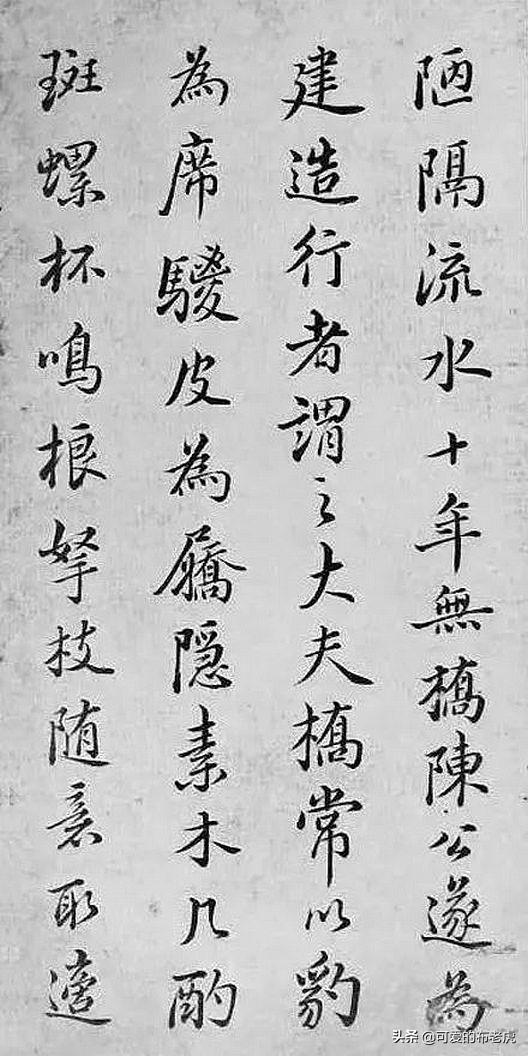 陋隔流水十年無橋陳公遂為
建造行者謂之大夫橋常以豹
為席騣皮為屩隠素木几酌
斑螺杯鳴桹拏枝随意取適
头条 @可爱的布老虎